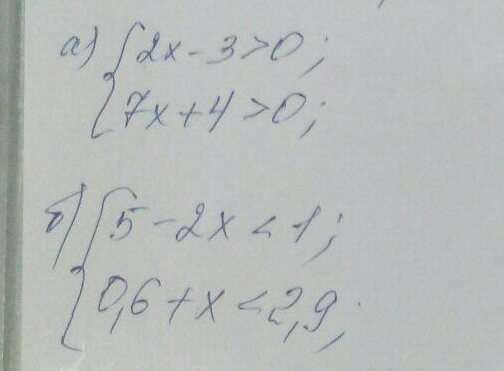 а) { 2x - 3 > 0;
7x + 4 > 0;
б) { 5 - 2x < 1;
0,6 + x < 2,9;